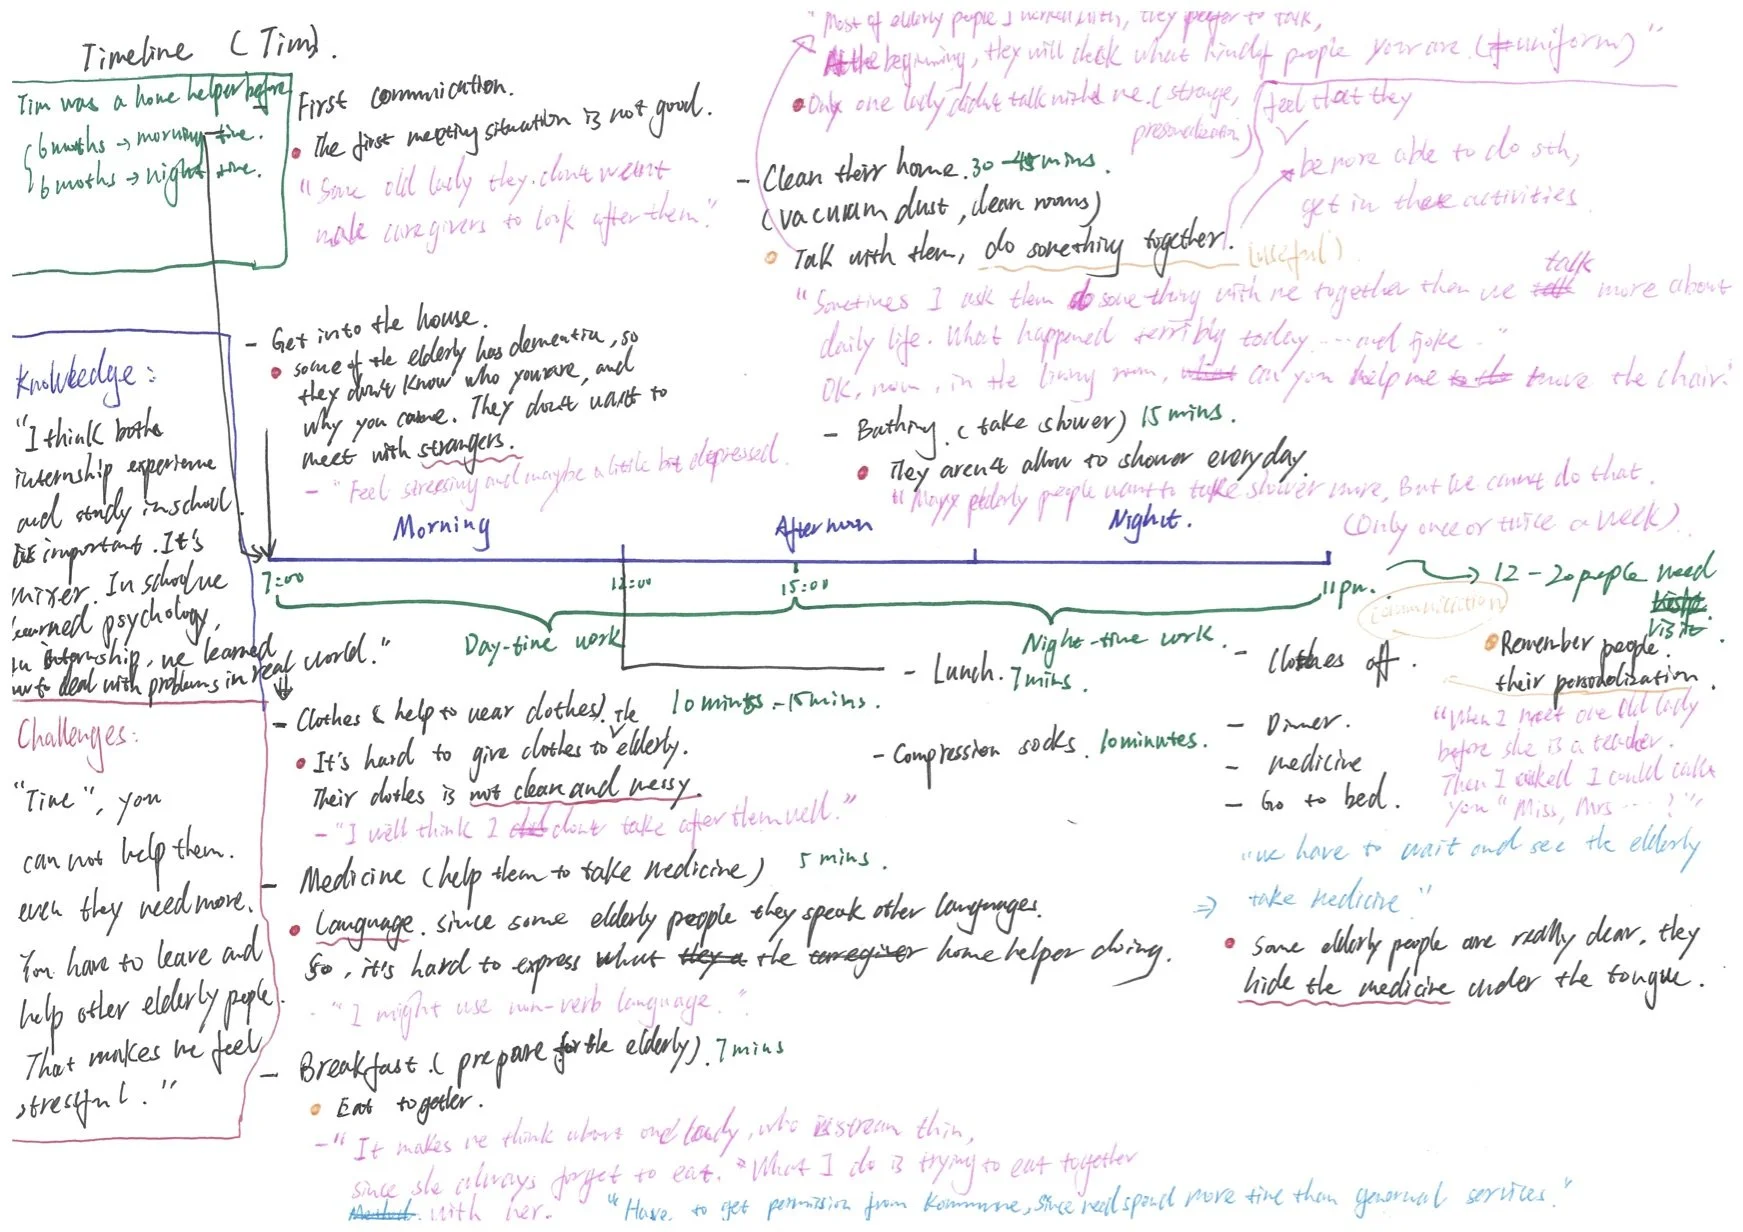 Timeline (Tim).
Tim was a home helper before
6 months → morning time.
6 moths → night time.
First communication.
The first meeting situation is not good.
"Some old lady they don't want
male caregivers to look after them."
"Most of elderly people I worked with, they prefer to talk,
At the beginning, they will check what kind of people your are. (≠ uniform)"
Only one lady didn't talk with me. (strange,
personalization)
feel that they
be more able to do sth,
get in these activities
- Clean their home. 30-45 mins.
(vacuum dust, clean rooms)
Talk with them, do something together. (useful)
"Sometimes I ask them do something with me together then we talk more about
daily life. What happened terribly today ... and joke."
OK, now, in the living room, can you help me move the chair."
- Bathing. (take shower) 15 mins.
They aren't allow to shower everyday.
"Many elderly people want to take shower more, But we cannot do that.
(Only once or twice a week).
- Get into the house.
some of the elderly has dementia, so
they don't know who you are, and
why you came. They don't want to
meet with strangers.
- "Feel stressing and maybe a little bit depressed.
Knowledge:
"I think both
internship experience
and study in school
is important. It's
mixer. In school we
learned psychology,
in internship, we learned
how to deal with problems in real world."
Morning
Afternoon
Night.
7:00
12:00
15:00
11 pm.
→ 12 - 20 people need
visit.
Day-time work
Night-time work.
communication
Remember people.
their personalization.
"When I meet one old lady
before she is a teacher.
Then I asked I could call
you "Miss, Mrs ... ?"",
- Lunch. 7 mins.
- Compression socks. 10 minutes.
- Clothes off.
- Dinner.
- medicine
- Go to bed.
"we have to wait and see the elderly
⇒ take medicine"
Some elderly people are really clear, they
hide the medicine under the tongue.
Challenges:
"Time", you
can not help them.
even they need more.
You have to leave and
help other elderly people.
That makes me feel
stressful."
- Clothes (help to wear clothes). 10 minutes - 15 mins.
It's hard to give clothes to the elderly.
Their clothes is not clean and messy.
- "I will think I don't take after them well."
- Medicine (help them to take medicine) 5 mins.
Language. since some elderly people they speak other languages.
So, it's hard to express what they a the caregiver home helper doing.
- "I might use non-verb language."
- Breakfast. (prepare for the elderly). 7 mins
Eat together.
- "It makes me think about one lady, who is thin,
since she always forget to eat. "What I do is trying to eat together
with her.
"Have to get permission from Kommune, since need spend more time than general services."